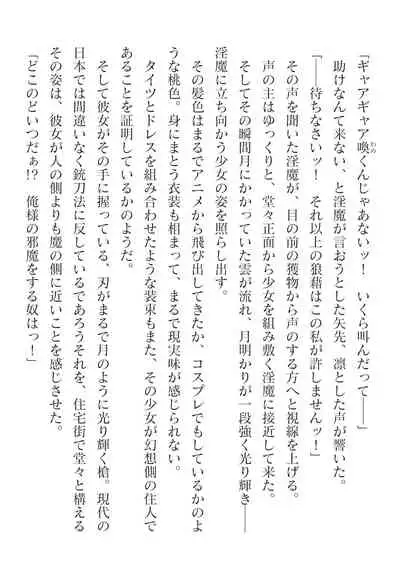 「ギャアギャア喚くんじゃあないッ！　いくら叫んだって――」
わめ
助けなんて来ない、と淫魔が言おうとした矢先、凛とした声が響いた。
「――待ちなさいッ！　それ以上の狼藉はこの私が許しませんッ！」
その声を聞いた淫魔が、目の前の獲物から声のする方へと視線を上げる。
声の主はゆっくりと、堂々正面から少女を組み敷く淫魔に接近して来た。
そしてその瞬間月にかかっていた雲が流れ、月明かりが一段強く光り輝き――
淫魔に立ち向かう少女の姿を照らし出す。
その髪色はまるでアニメから飛び出してきたか、コスプレでもしているかのよ
うな桃色。身にまとう衣装も相まって、まるで現実味が感じられない。
タイツとドレスを組み合わせたような装束もまた、その少女が幻想側の住人で
あることを証明しているかのようだ。
そして彼女がその手に握っている、刃がまるで月のように光り輝く槍。現代の
日本では間違いなく銃刀法に反しているであろうそれを、住宅街で堂々と構える
その姿は、彼女が人の側よりも魔の側に近いことを感じさせた。
「どこのどいつだぁ!?　俺様の邪魔をする奴はっ！」